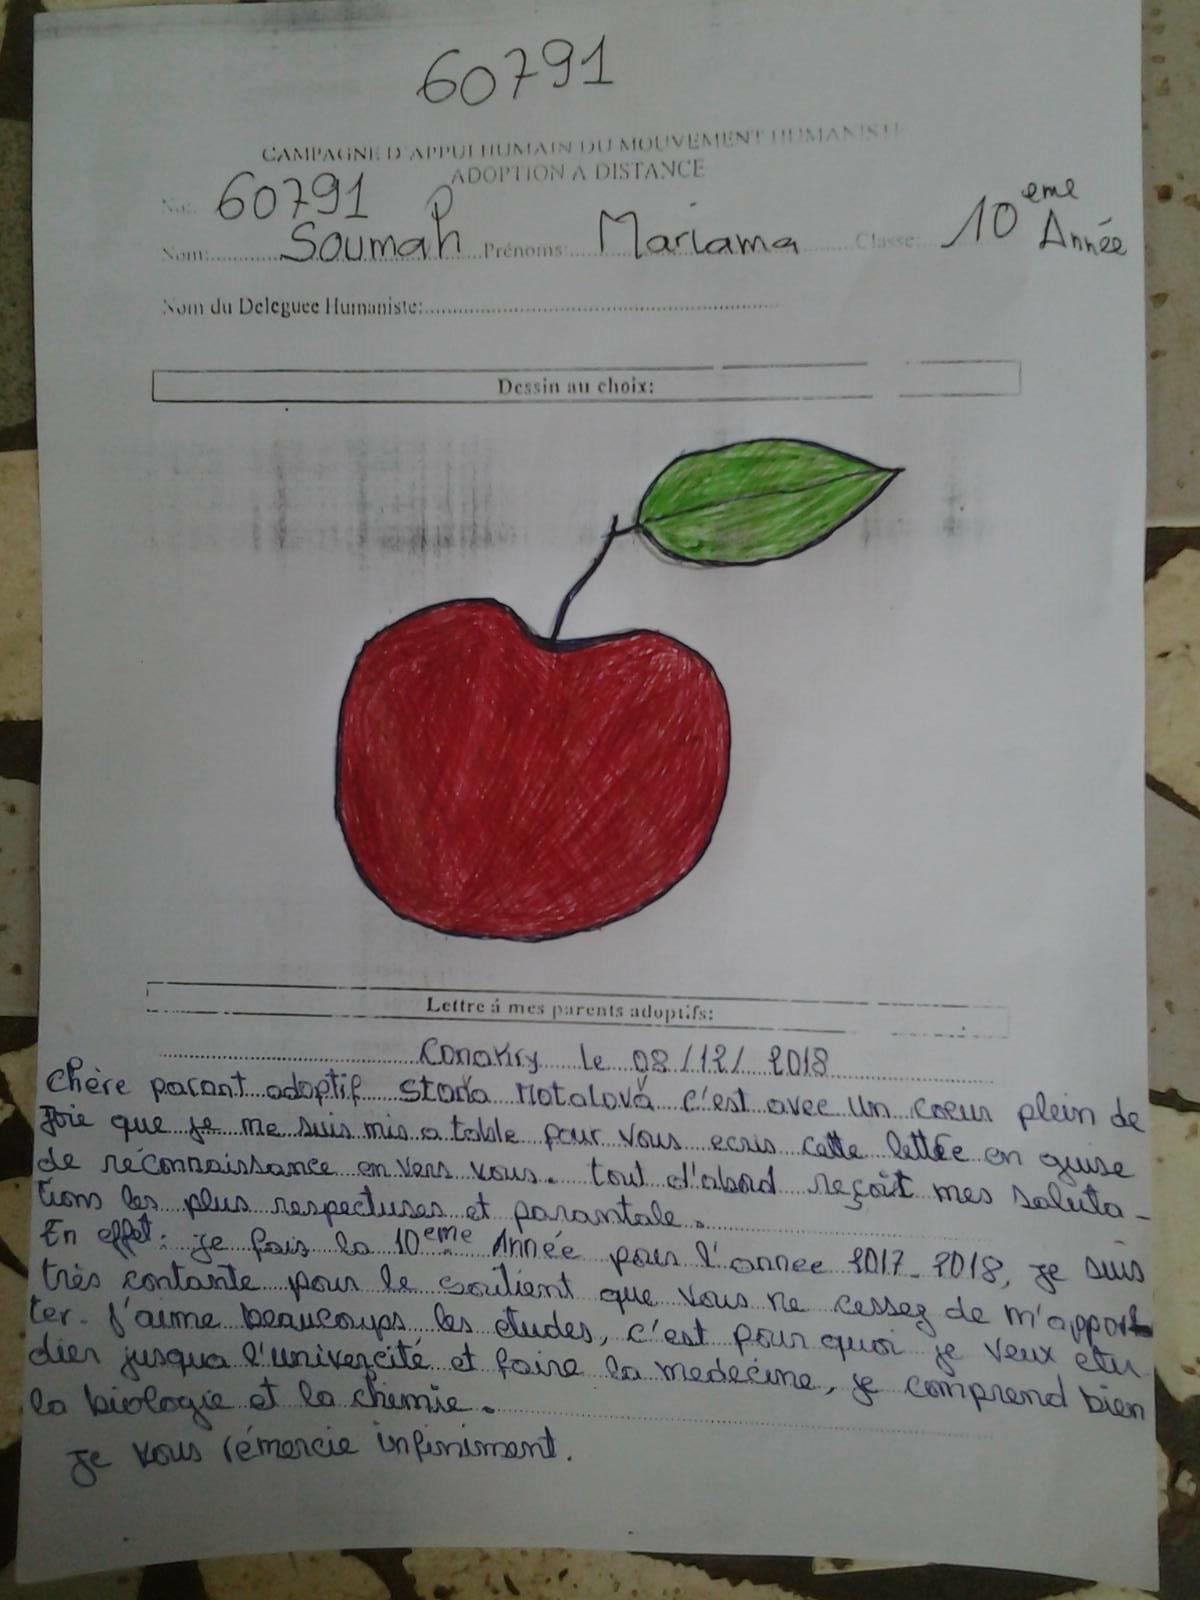 60791
CAMPAGNE D'APPUI HUMAIN DU MOUVEMENT HUMANISTE
ADOPTION A DISTANCE
No: 60791
Nom: Soumah Prénoms: Mariama Classe: 10eme Année
Nom du Deleguee Humaniste:
Dessin au choix:
Lettre á mes parents adoptifs:
Conakry le 08/12/2018
Chère parant adoptif Stařa Motalová c'est avec un coeur plein de
joie que je me suis mis a table pour vous ecris cette lettre en guise
de réconnaissance en vers vous. tout d'abord reçoit mes saluta-
tions les plus respectuses et parantale.
En effet: je fais la 10eme Année pour l'année 2017-2018, je suis
très contante pour le soutient que vous ne cessez de m'appor
ter. J'aime beaucoups les etudes, c'est pour quoi je veux etu
dier jusqua l'univercité et faire la medecine, je comprend bien
la biologie et la chemie.
je vous rémercie infiniment.